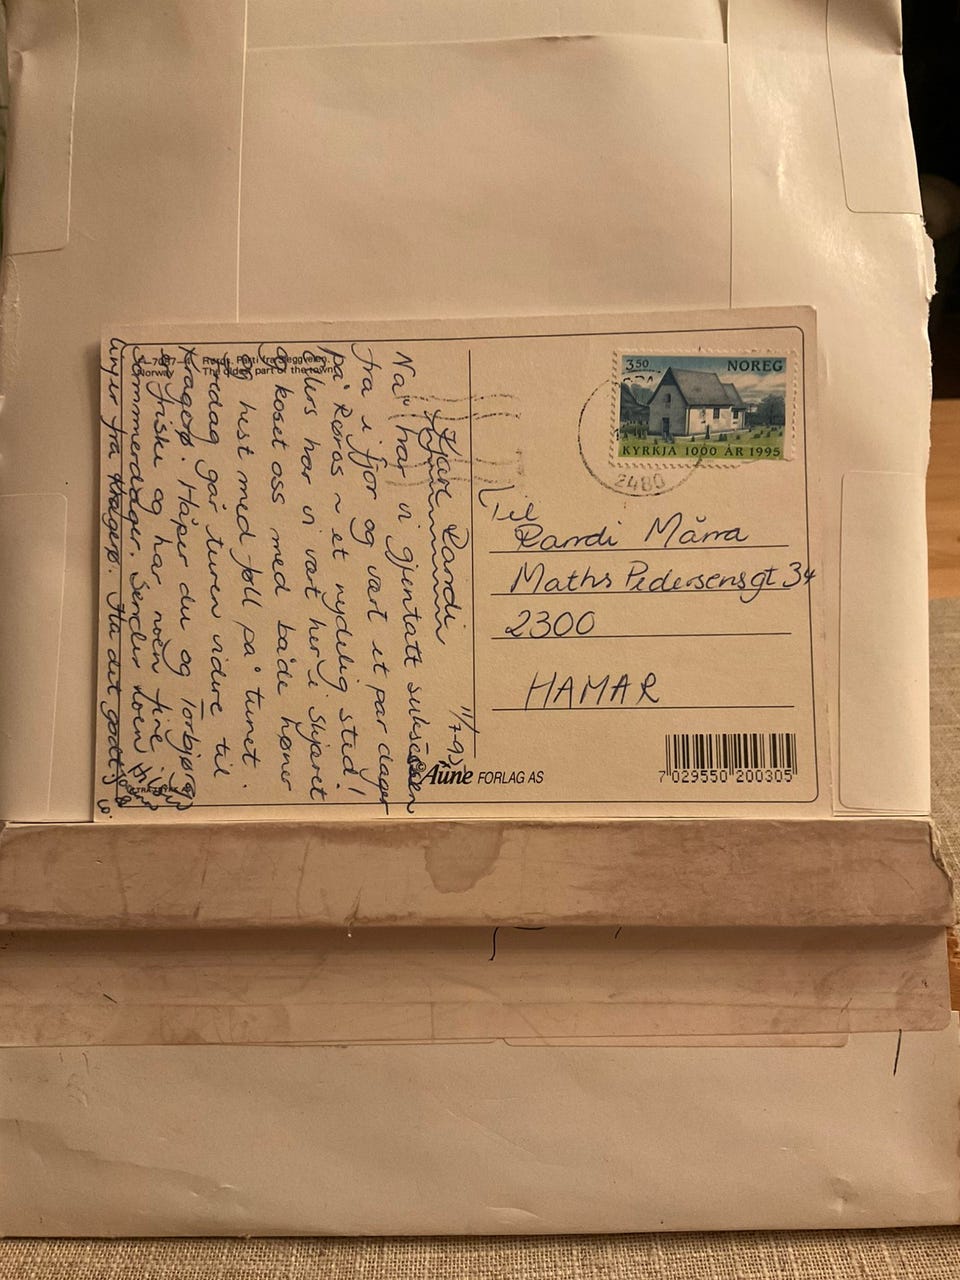 A-7087-
Norway
Røros. Parti fra Sleggveien.
The oldest part of the town.
11/7-95
Kjære Randi
Nå har vi gjentatt suksessen
fra i fjor og vært et par dager
på Røros - et nydelig sted!
Ellers har vi vært her i Skjæret
og koset oss med både høner
og hest med føll på tunet.
går turen videre til
Kragerø. Håper du og Torbjørg
er friske og har noen fine
sommerdager. Sender noen
linjer fra Kragerø. Ha det godt
© Aune FORLAG AS
3.50 NOREG
KYRKJA 1000 ÅR 1995
2480
Til
Randi Mårra
Maths Pedersensgt 34
2300
HAMAR
7 029550 200305